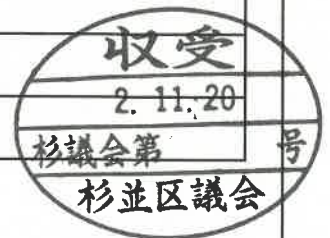 収受
2. 11. 20
杉議会第 号
杉並区議会